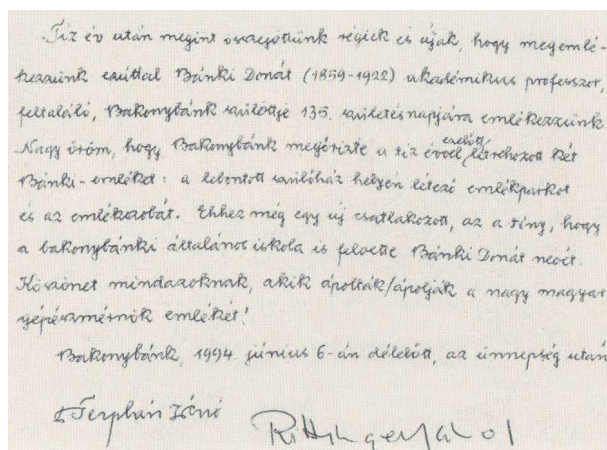 Tíz év után megint összejöttünk régiek és újak, hogy megemlé-
kezzünk ezúttal Bánki Donát (1859-1922) akadémikus professzor,
feltaláló, Bakonybánk szülöttje 135. születésnapjára emlékezzünk
Nagy öröm, hogy Bakonybánk megőrizte a tíz évvel ezelőtt létrehozott két
Bánki-emléket: a lebontott szülőház helyén létező emlékparkot
és az emlékszobát. Ehhez még egy új csatlakozott, az a tény, hogy
a bakonybánki általános iskola is felvette Bánki Donát nevét.
Köszönet mindazoknak, akik ápolták/ápolják a nagy magyar
gépészmérnök emlékét!
Bakonybánk, 1994. június 6-án délelőtt, az ünnepség után
Terplán Zénó